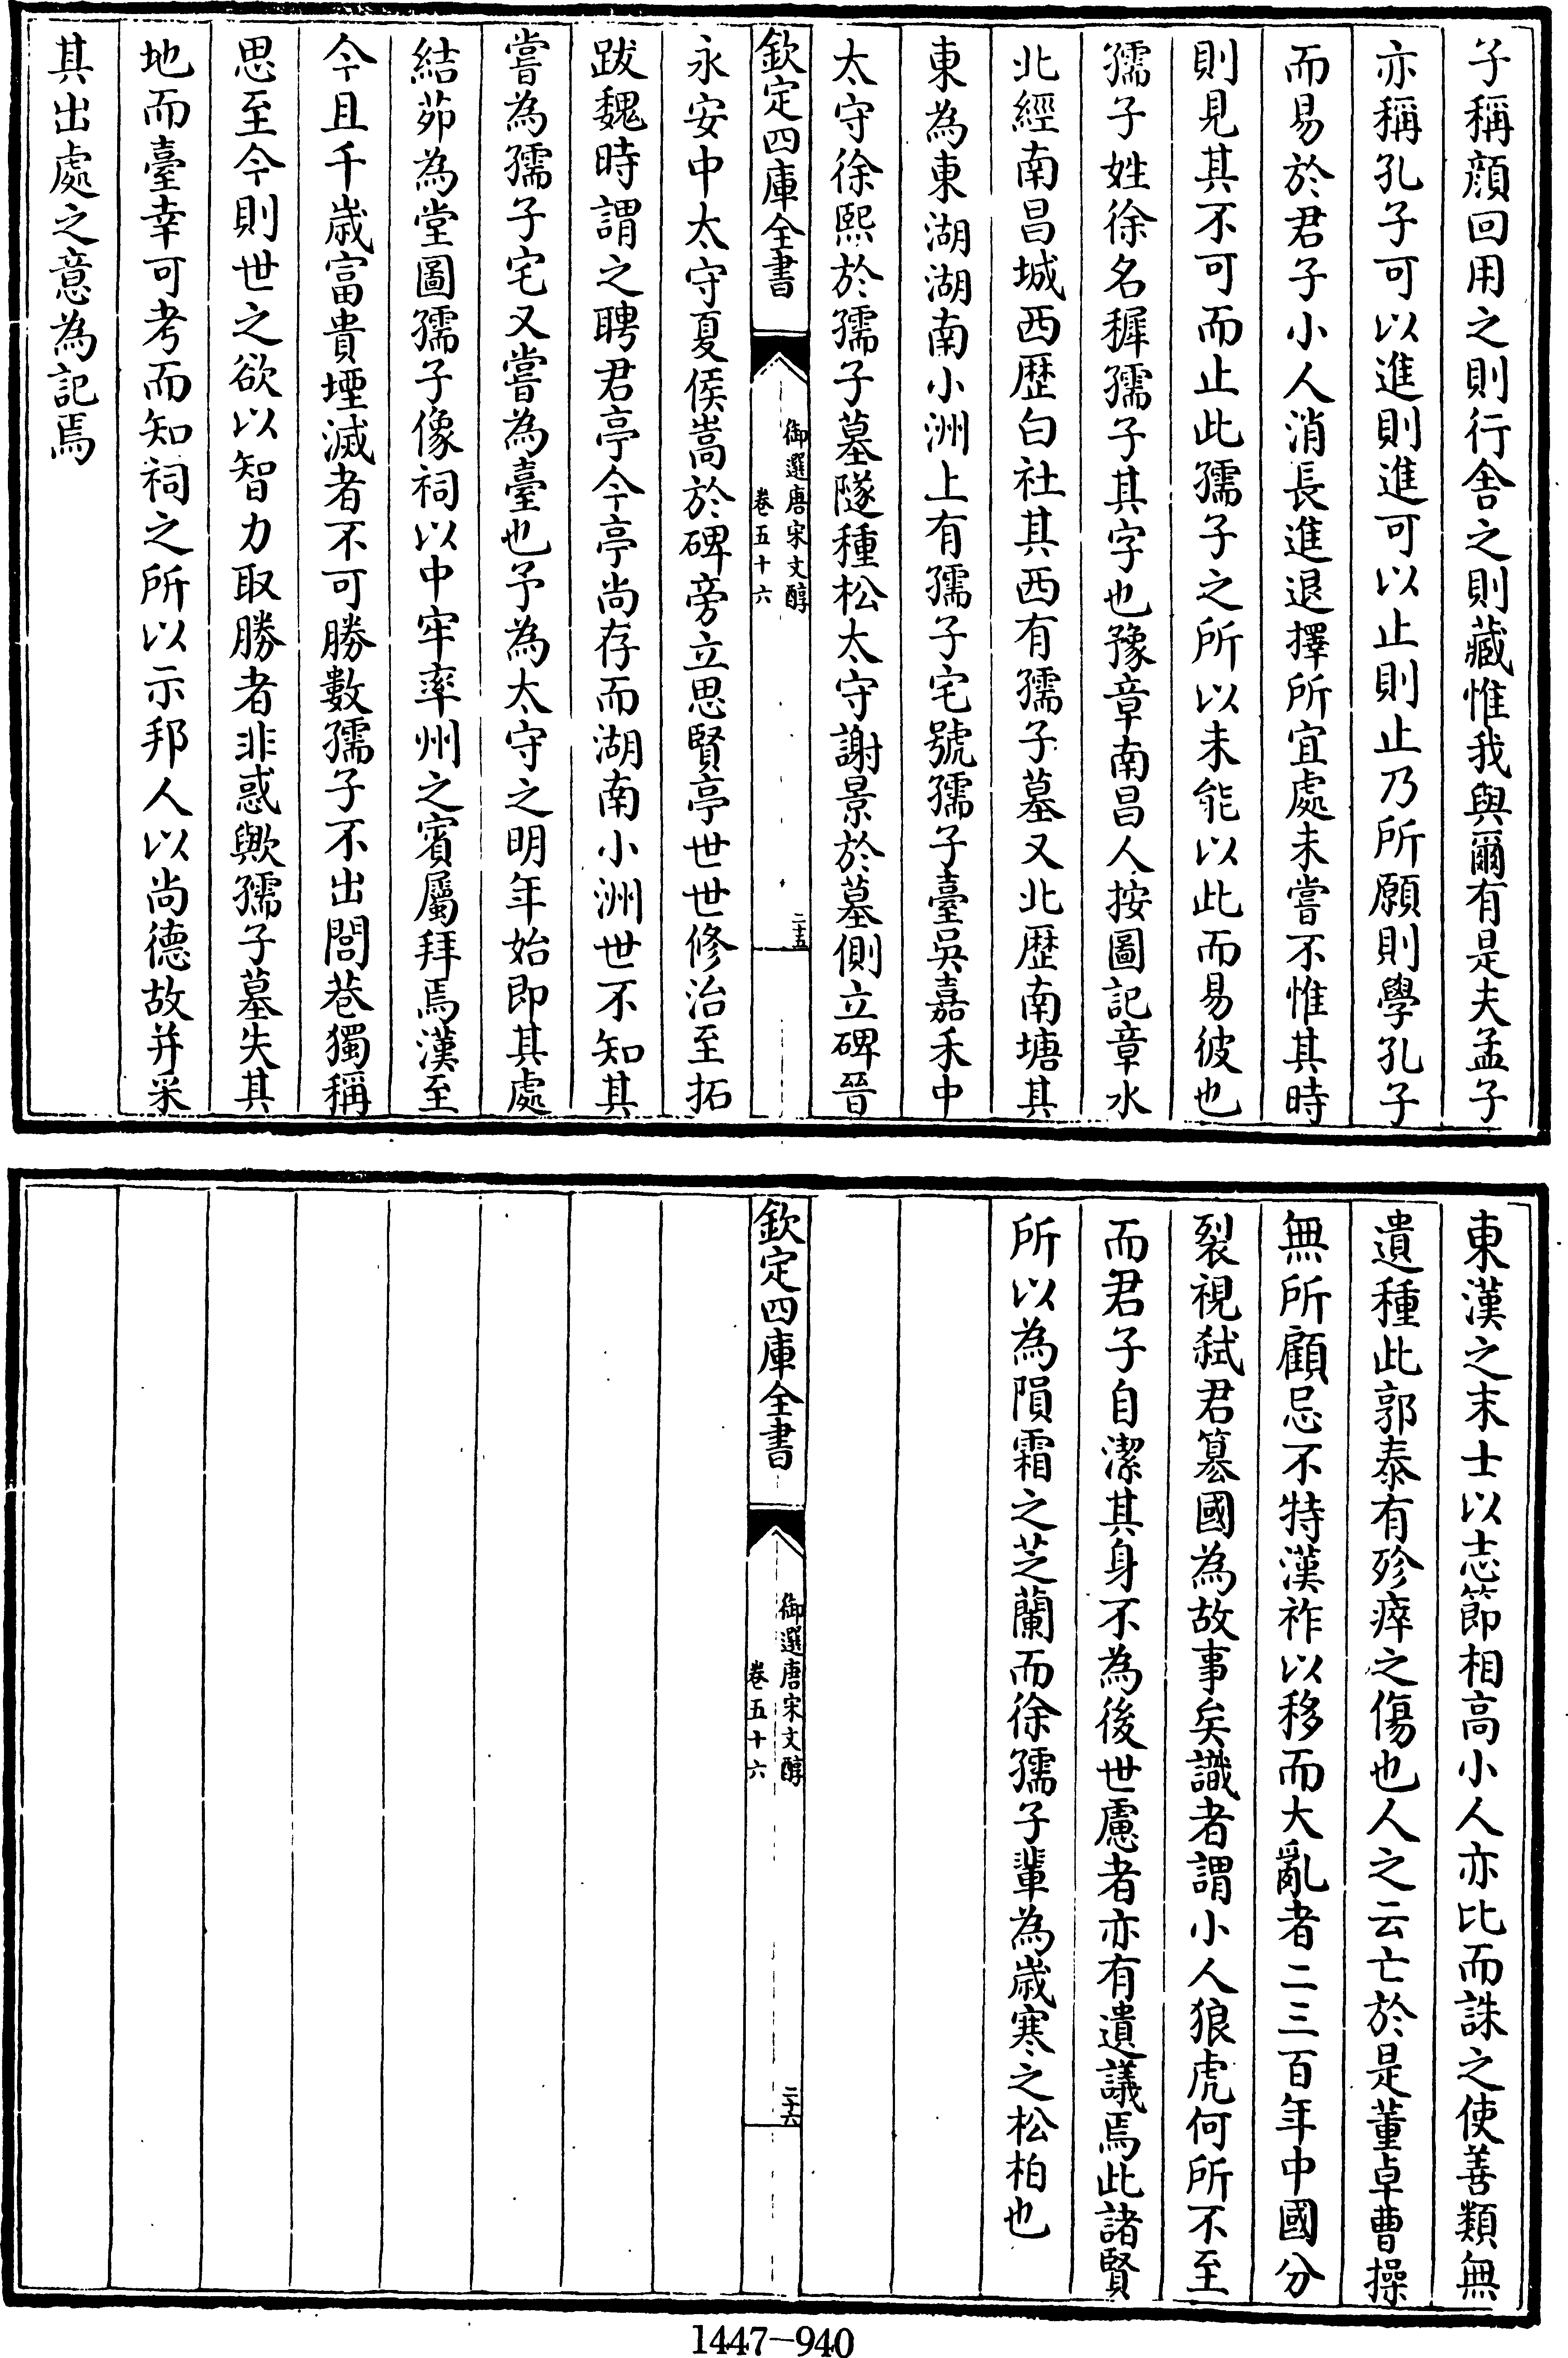 子稱顔回用之則行舍之則藏惟我與爾有是夫孟子
亦稱孔子可以進則進可以止則止乃所願則學孔子
而易於君子小人消長進退擇所宜處未嘗不惟其時
則見其不可而止此孺子之所以未能以此而易彼也
孺子姓徐名穉孺子其字也豫章南昌人按圖記章水
北經南昌城西歴白社其西有孺子墓又北歴南塘其
東為東湖湖南小洲上有孺子宅號孺子臺吳嘉禾中
太守徐熙於孺子墓隧種松太守謝景於墓側立碑晉
欽定四庫全書
御選唐宋文醇
卷五十六
二十五
永安中太守夏侯嵩於碑旁立思賢亭世世修治至拓
跋魏時謂之聘君亭今亭尚存而湖南小洲世不知其
嘗為孺子宅又嘗為臺也予為太守之明年始即其處
結茆為堂圖孺子像祠以中牢率州之賓屬拜焉漢至
今且千歳富貴堙滅者不可勝數孺子不出閭巷獨稱
思至今則世之欲以智力取勝者非惑歟孺子墓失其
地而臺幸可考而知祠之所以示邦人以尚德故并采
其出處之意為記焉
東漢之末士以志節相高小人亦比而誅之使善類無
遺種此郭泰有殄瘁之傷也人之云亡於是董卓曹操
無所顧忌不特漢祚以移而大亂者二三百年中國分
裂視弑君簒國為故事矣識者謂小人狼虎何所不至
而君子自潔其身不為後世慮者亦有遺議焉此諸賢
所以為隕霜之芝蘭而徐孺子輩為歳寒之松柏也
欽定四庫全書
御選唐宋文醇
卷五十六
二十六
1447-940